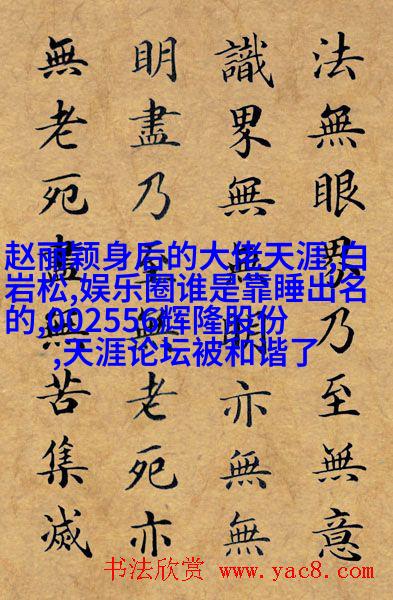 法無眼界乃至無意
識界無無明亦無無
明盡乃至無老死亦
無老死盡無苦集滅
赵丽颖身后的大佬天涯,白
岩松,娱乐圈谁是靠睡出名
的,002556辉隆股份
,天涯论坛被和谐了
书法欣赏 www.yac8.com